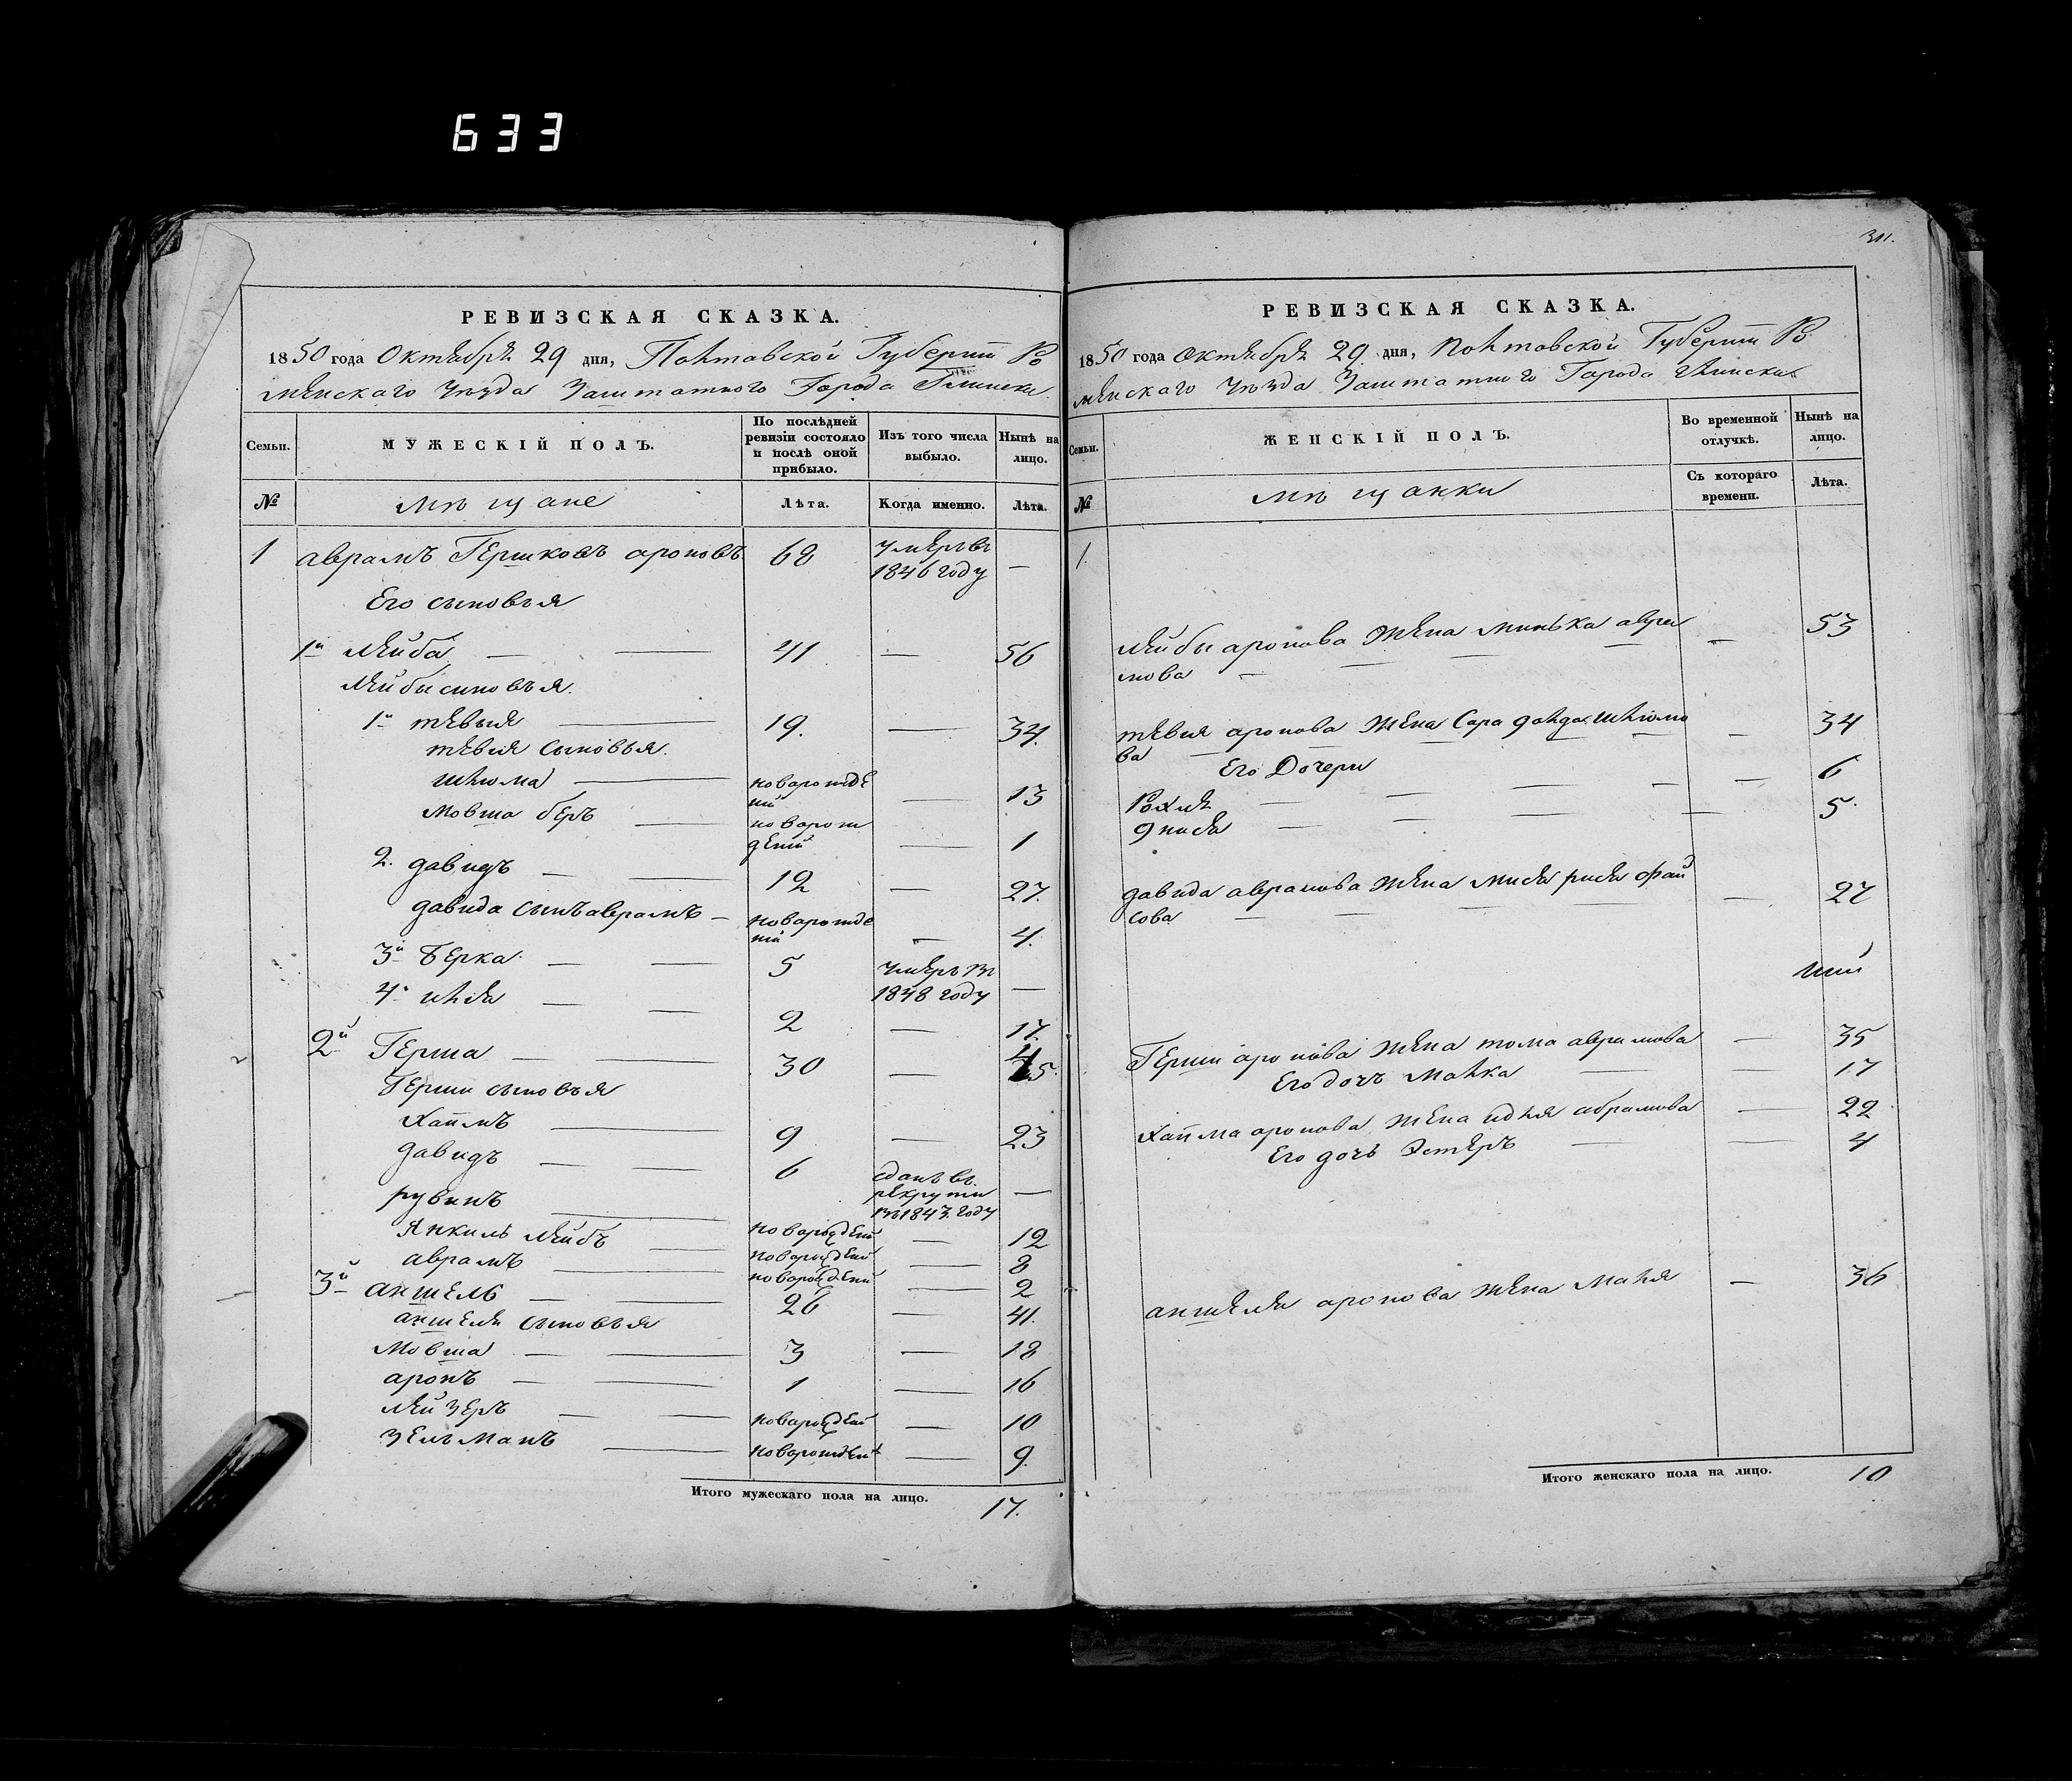 633
РЕВИЗСКАЯ СКАЗКА.
1850 года Октября 29 дня, Полтавской Губернии Ро
менскаго уѣзда Заштатного Города Глинска
Семьи.
МУЖЕСКІЙ ПОЛЪ.
По послѣдней ревизіи состояло и послѣ оной прибыло.
Изъ того числа выбыло.
Нынѣ на лицо.
№ мѣщане Лѣта. Когда именно. Лѣта.
1 аврамъ Гершковъ ароновъ 68 умеръ въ 1846 году —
Его сыновья
1й лейба — — 41 — 56
лейбы синовья.
1й тевыя — 19. — 34.
тевия сыновья.
шлюма — новарожде ний — 13
мовша беръ — новарож дений — 1
2. давидъ — — 12 — 27.
давида сынъ аврамъ — новарожде ний — 4.
3й Берка — — 5 умеръ въ 1848 году —
4й илья — — 2 — 17.
2й Герша — — 30 — 45.
Герши сыновья
Хаимъ — 9 — 23
давидъ — — 6 сданъ въ рекруты въ 1847. году —
рувинъ — новарожденй — 12
Янкиль лейбъ — новарожденй — 8
аврамъ — новарожденй — 2
3й аншель — — 26 — 41.
аншеля сыновья
Мовша — — 3 — 18
аронъ — — 1 — 16
лейзеръ — — новарожденй — 10
зельманъ — новарожденй — 9.
Итого мужескаго пола на лицо. 17.
311.
РЕВИЗСКАЯ СКАЗКА.
1850 года Октября 29 дня, Полтавской Губернии Ро
менскаго уѣзда Заштатнго Города Глинска
Семьи.
ЖЕНСКІЙ ПОЛЪ.
Во временной отлучкѣ.
Нынѣ на лицо.
№ мѣщанки Съ котораго времени. Лѣта.
1.
лейбы аронова жена минька авра — 53
мова — — — —
тевия аронова жена Сара шлюмо — 34
ва — — — —
Его Дочери
Рохля — — — — — 6
— — — — 5.
давида аврамова жена рися фай — 27
сова — — — —
Герши аронова жена тома аврамова — 35
Его дочъ Малка — 17
Хаима аронова жена идля абрамова — 22
Его дочъ Эстеръ — — 4
аншеля аронова жена Маля — 36
Итого женскаго пола на лицо. 10